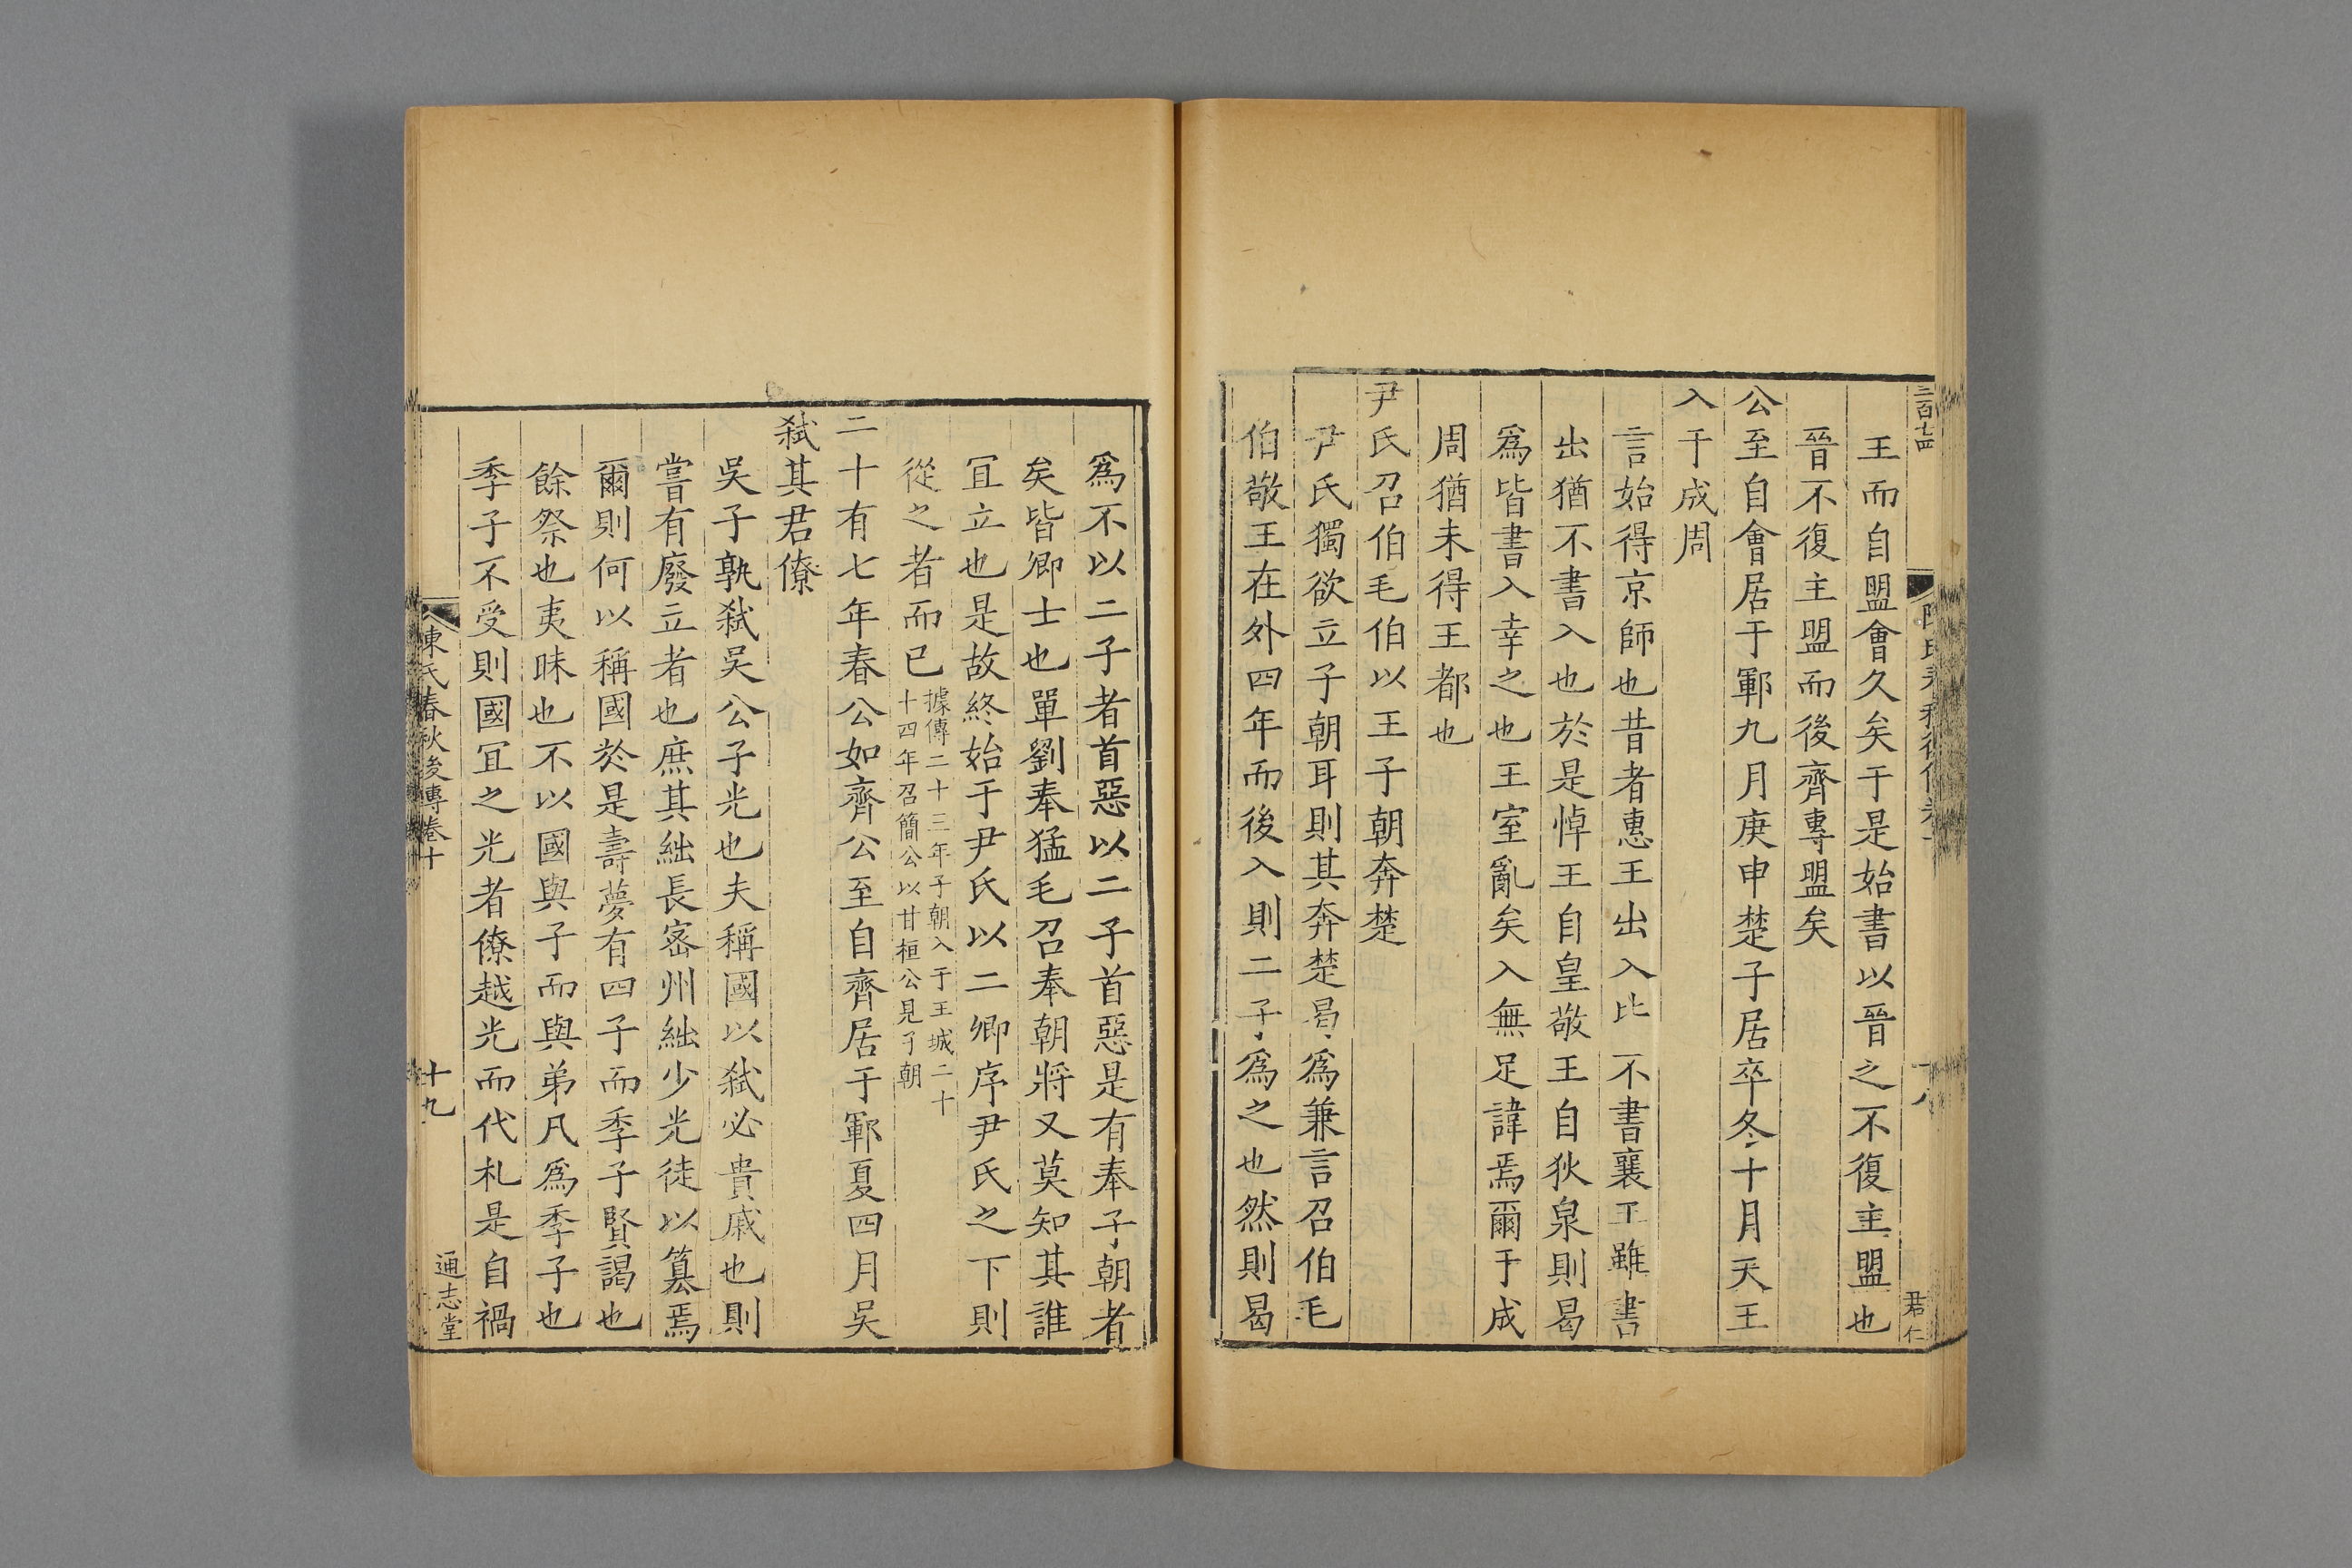 三百七四
王而自盟會久矣于是始書以晉之不復主盟也
晉不復主盟而後齊專盟矣
公至自會居于鄆九月庚申楚子居卒冬十月天王
入于成周
言始得京師也昔者惠王出入比不書襄王雖書
出猶不書入也於是悼王自皇敬王自狄泉則曷
爲皆書入幸之也王室亂矣入無足諱焉爾于成
周猶未得王都也
尹氏召伯毛伯以王子朝奔楚
尹氏獨欲立子朝耳則其奔楚曷爲兼言召伯毛
伯敬王在外四年而後入則二子爲之也然則曷
君仁
爲不以二子者首惡以二子首惡是有奉子朝者
矣皆卿士也單劉奉猛毛召奉朝將又莫知其誰
冝立也是故終始于尹氏以二卿序尹氏之下則
從之者而已據傳二十三年子朝入于王城二十
十四年召簡公以甘桓公見子朝
二十有七年春公如齊公至自齊居于鄆夏四月吳
弑其君僚
吳子孰弑吳公子光也夫稱國以弑必貴戚也則
嘗有廢立者也庶其絀長宻州絀少光徒以簒焉
爾則何以稱國於是壽夢有四子而季子賢謁也
餘祭也夷昧也不以國與子而與弟凡爲季子也
季子不受則國冝之光者僚越光而代札是自禍
陳氏春秋後傳卷十
十九
通志堂